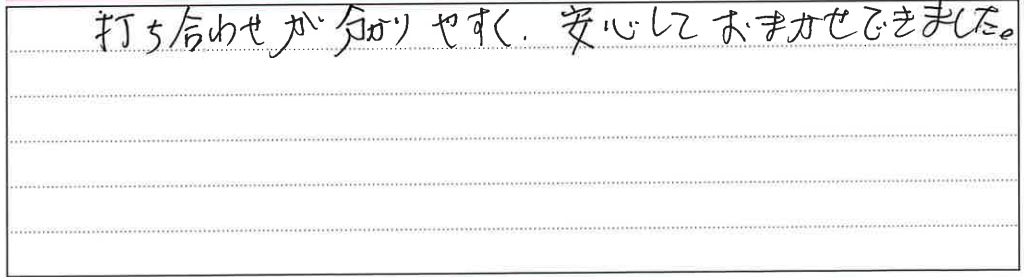 打ち合わせが分かりやすく、安心しておまかせできました。